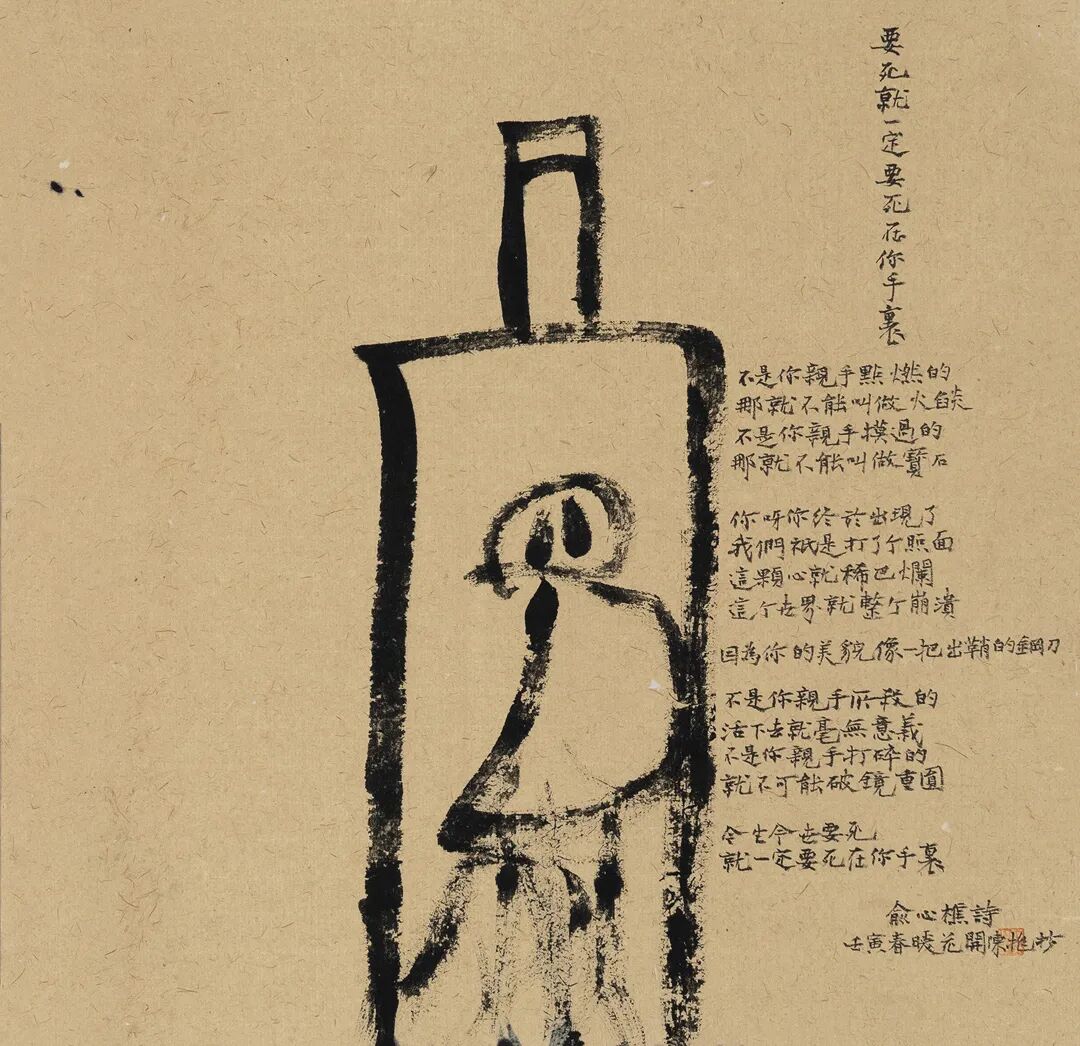 要死就一定要死在你手裏
不是你親手點燃的
那就不能叫做火焰
不是你親手摸過的
那就不能叫做寶石
你呀你終於出現了
我們衹是打了个照面
這顆心就稀巴爛
這个世界就整个崩潰
因為你的美貌像一把出鞘的鋼刀
不是你親手所殺的
活下去就毫無意義
不是你親手打碎的
就不可能破鏡重圓
今生今世要死
就一定要死在你手裏
俞心樵詩
壬寅春暖花開陳推抄